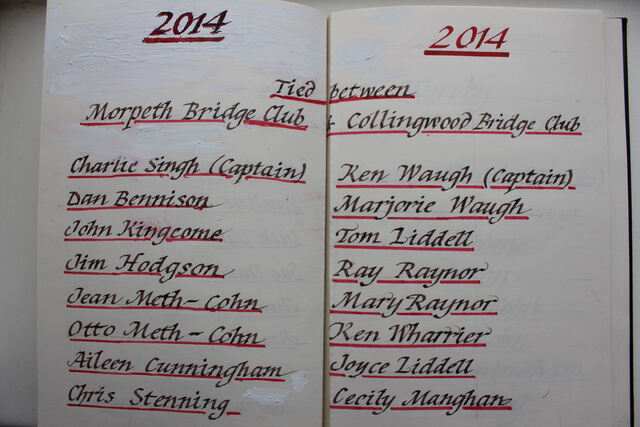 2014
Tied
Morpeth Bridge Club
Charlie Singh (Captain)
Dan Bennison
John Kingcome
Jim Hodgson
Jean Meth-Cohn
Otto Meth-Cohn
Aileen Cunningham
Chris Stenning
2014
between
& Collingwood Bridge Club
Ken Waugh (Captain)
Marjorie Waugh
Tom Liddell
Ray Raynor
Mary Raynor
Ken Wharrier
Joyce Liddell
Cecily Manghan